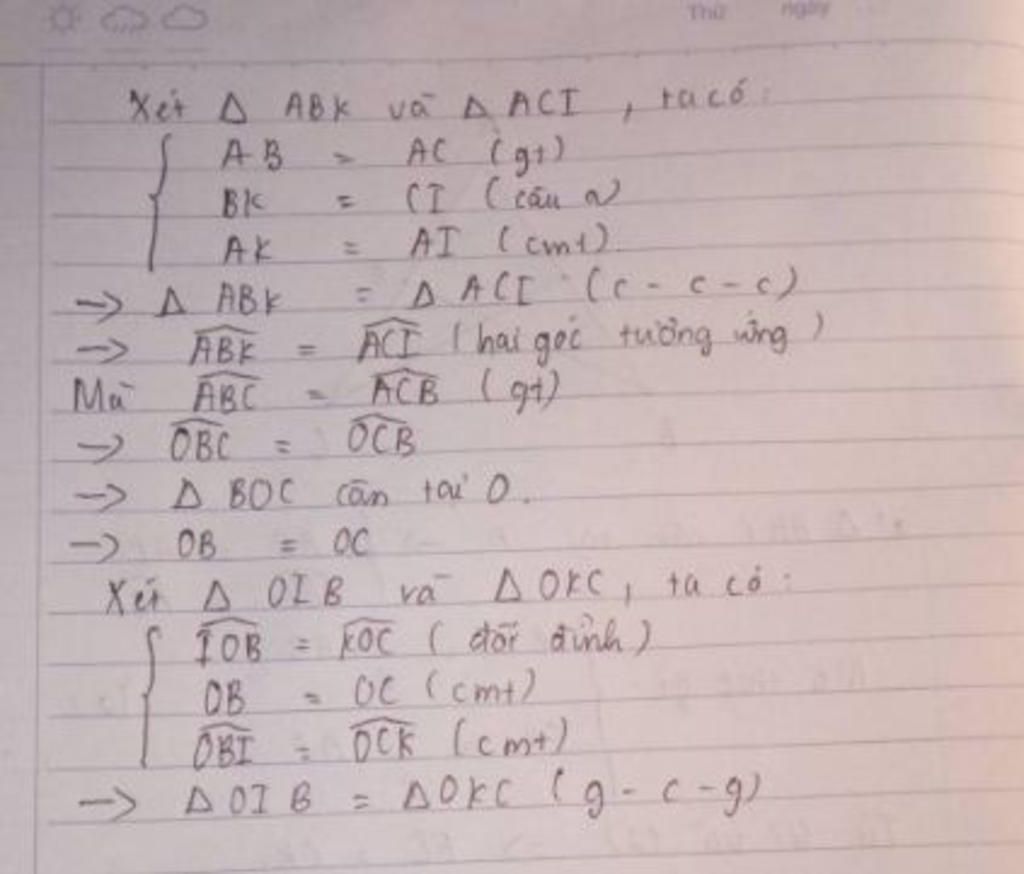 Thứ ngày
Xét Δ ABK và Δ ACI, ta có:
AB = AC (gt)
BK = CI (câu a)
AK = AI (cmt)
-> Δ ABK = Δ ACI (c - c - c)
-> \widehat{ABK} = \widehat{ACI} (hai góc tương ứng)
Mà \widehat{ABC} = \widehat{ACB} (gt)
-> \widehat{OBC} = \widehat{OCB}
-> Δ BOC cân tại O.
-> OB = OC
Xét Δ OIB và Δ OKC, ta có:
\widehat{IOB} = \widehat{KOC} (đối đỉnh)
OB = OC (cmt)
\widehat{OBI} = \widehat{OCK} (cmt)
-> Δ OIB = Δ OKC (g - c - g)